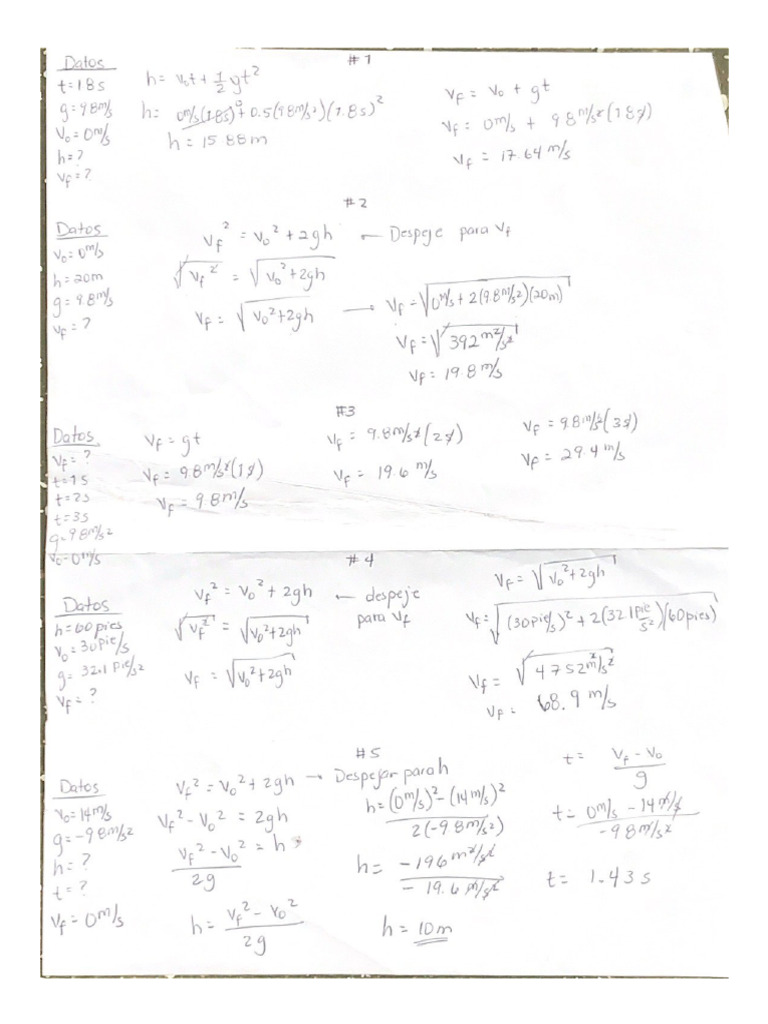 #1
Datos
t=1.8s
g=9.8m/s
V₀=0m/s
h=?
vf=?
h= v₀t + 1/2 gt²
h= 0m/s(1.8s) + 0.5(9.8m/s²)(1.8s)²
h= 15.88m
vf = v₀ + gt
vf= 0m/s + 9.8m/s²(1.8s)
vf = 17.64m/s
#2
Datos
v₀=0m/s
h=20m
g=9.8m/s
vf=?
vf² = v₀²+2gh ← Despeje para vf
√vf² = √v₀²+2gh
vf= √v₀²+2gh →
vf=√0m/s+2(9.8m/s²)(20m)
vf=√392m²/s²
vf= 19.8m/s
#3
Datos
vf=?
t=1s
t=2s
t=3s
g=9.8m/s²
v₀=0m/s
vf= gt
vf= 9.8m/s²(1s)
vf = 9.8m/s
vf= 9.8m/s²(2s)
vf= 19.6 m/s
vf= 9.8m/s²(3s)
vf= 29.4m/s
#4
Datos
h=60pies
v₀=30pie/s
g=32.1pie/s²
vf=?
vf²= v₀²+2gh ← despeje
para vf
√vf² = √v₀²+2gh
vf = √v₀²+2gh
vf=√v₀²+2gh
vf=√(30pie/s)²+2(32.1pie/s²)(60pies)
vf=√4752m²/s²
vf= 68.9m/s
#5
Datos
v₀=14m/s
g=-9.8m/s²
h=?
t=?
vf=0m/s
vf²=v₀²+2gh → Despejar para h
vf²-v₀² = 2gh
vf²-v₀² = h
2g
h= vf²-v₀²
2g
h=(0m/s)²-(14m/s)²
2(-9.8m/s²)
h= -196m²/s²
-19.6m/s²
h= 10m
t= vf-v₀
g
t= 0m/s-14m/s
-9.8m/s²
t= 1.43s